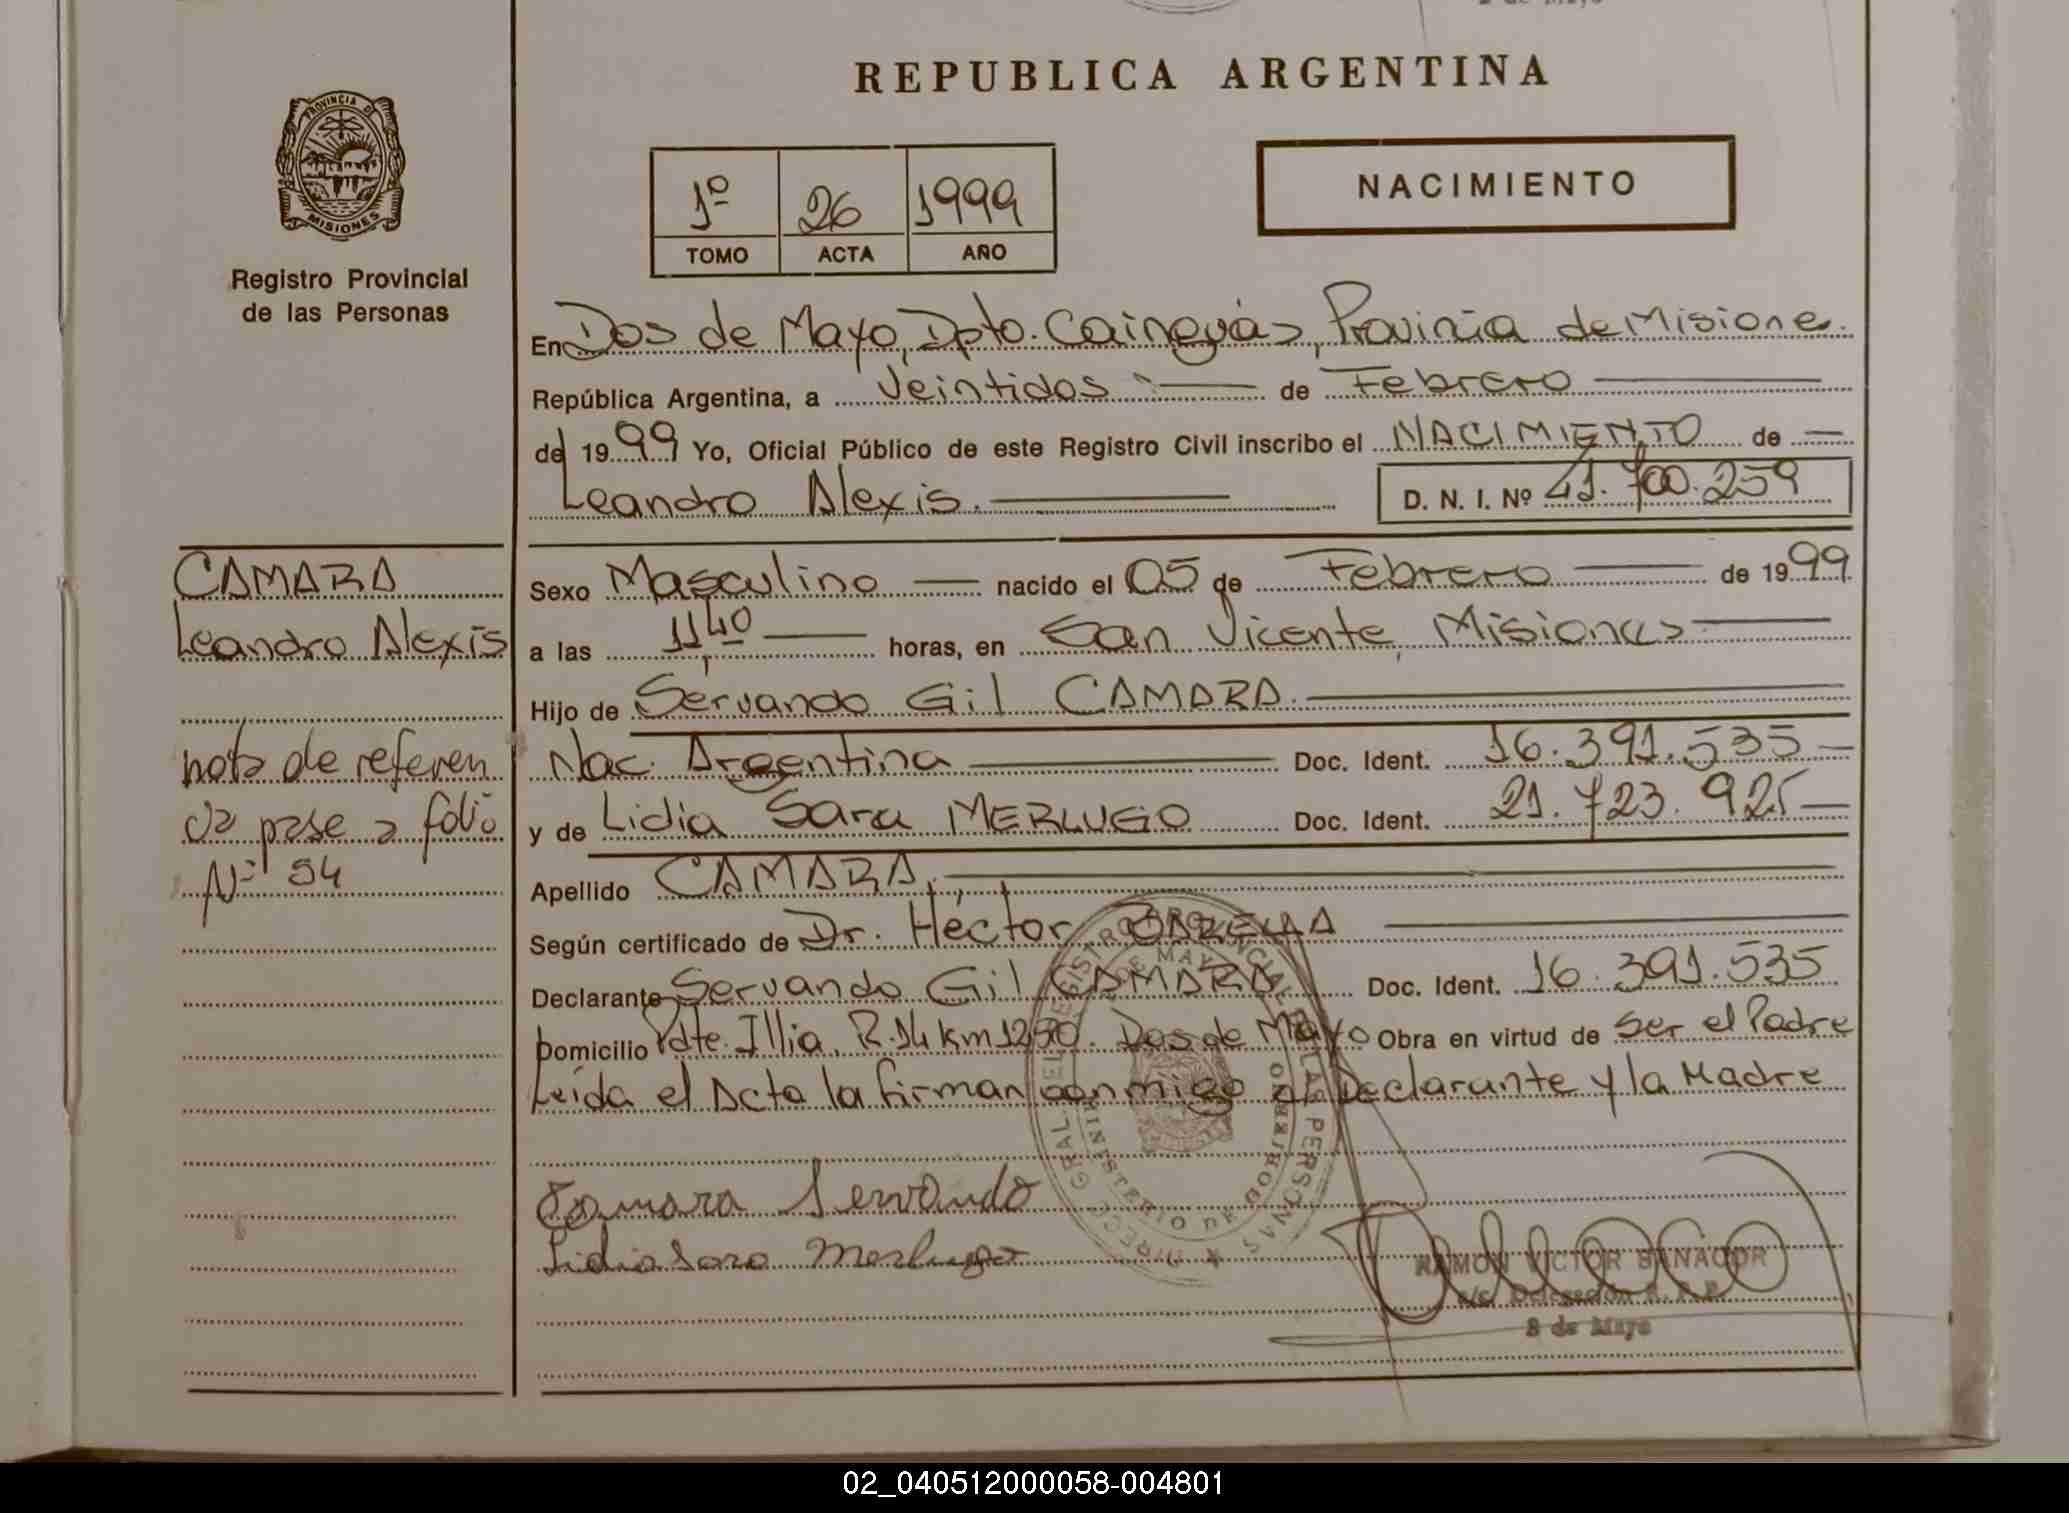 REPUBLICA ARGENTINA
PROVINCIA DE MISIONES
Registro Provincial
de las Personas
1º 26 1999
TOMO ACTA AÑO
NACIMIENTO
En Dos de Mayo, Dpto. Cainguás, Provincia de Misiones.
República Argentina, a Veintidos de Febrero
de 1999 Yo, Oficial Público de este Registro Civil inscribo el NACIMIENTO de
Leandro Alexis. D. N. I. Nº 41.700.259
CAMARA
Leandro Alexis
nota de referen
cia pase a folio
Nº 94
Sexo Masculino nacido el 05 de Febrero de 1999
a las 11,40 horas, en San Vicente, Misiones
Hijo de Servando Gil CAMARA.
Nac. Argentina Doc. Ident. 16.391.535
y de Lidia Sara MERLUGO Doc. Ident. 21.723.925
Apellido CAMARA.
Según certificado de Dr. Héctor
Declarante Servando Gil CAMARA Doc. Ident. 16.391.535
Domicilio Pdte. Illia, R.14 km 1250. Dos de Mayo Obra en virtud de ser el Padre
Leída el Acta la firman conmigo el Declarante y la Madre
DIREC. GRAL. DEL REGISTRO PROVINCIAL DE LAS PERSONAS
MINISTERIO DE GOBIERNO
Camara Servando
Lidia Sara Merlugo
RAMON VICTOR
a/c Delegación R. P. P.
2 de Mayo
02_040512000058-004801